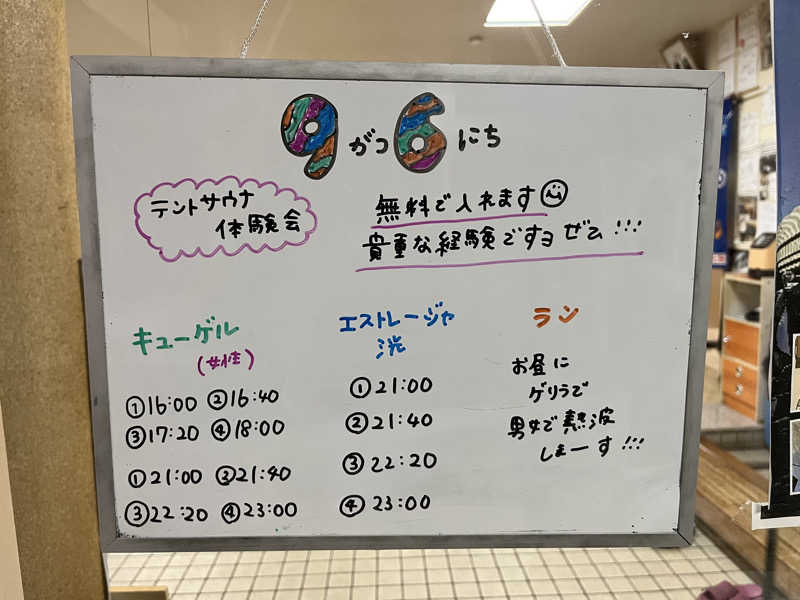 9がつ6にち
テントサウナ
体験会
無料で入れます
貴重な経験ですヨ ぜひ!!!
キューゲル
(女性)
①16:00 ②16:40
③17:20 ④18:00
①21:00 ②21:40
③22:20 ④23:00
エストレージャ
洸
①21:00
②21:40
③22:20
④23:00
ラン
お昼に
ゲリラで
男女で熱波
しまーす!!!